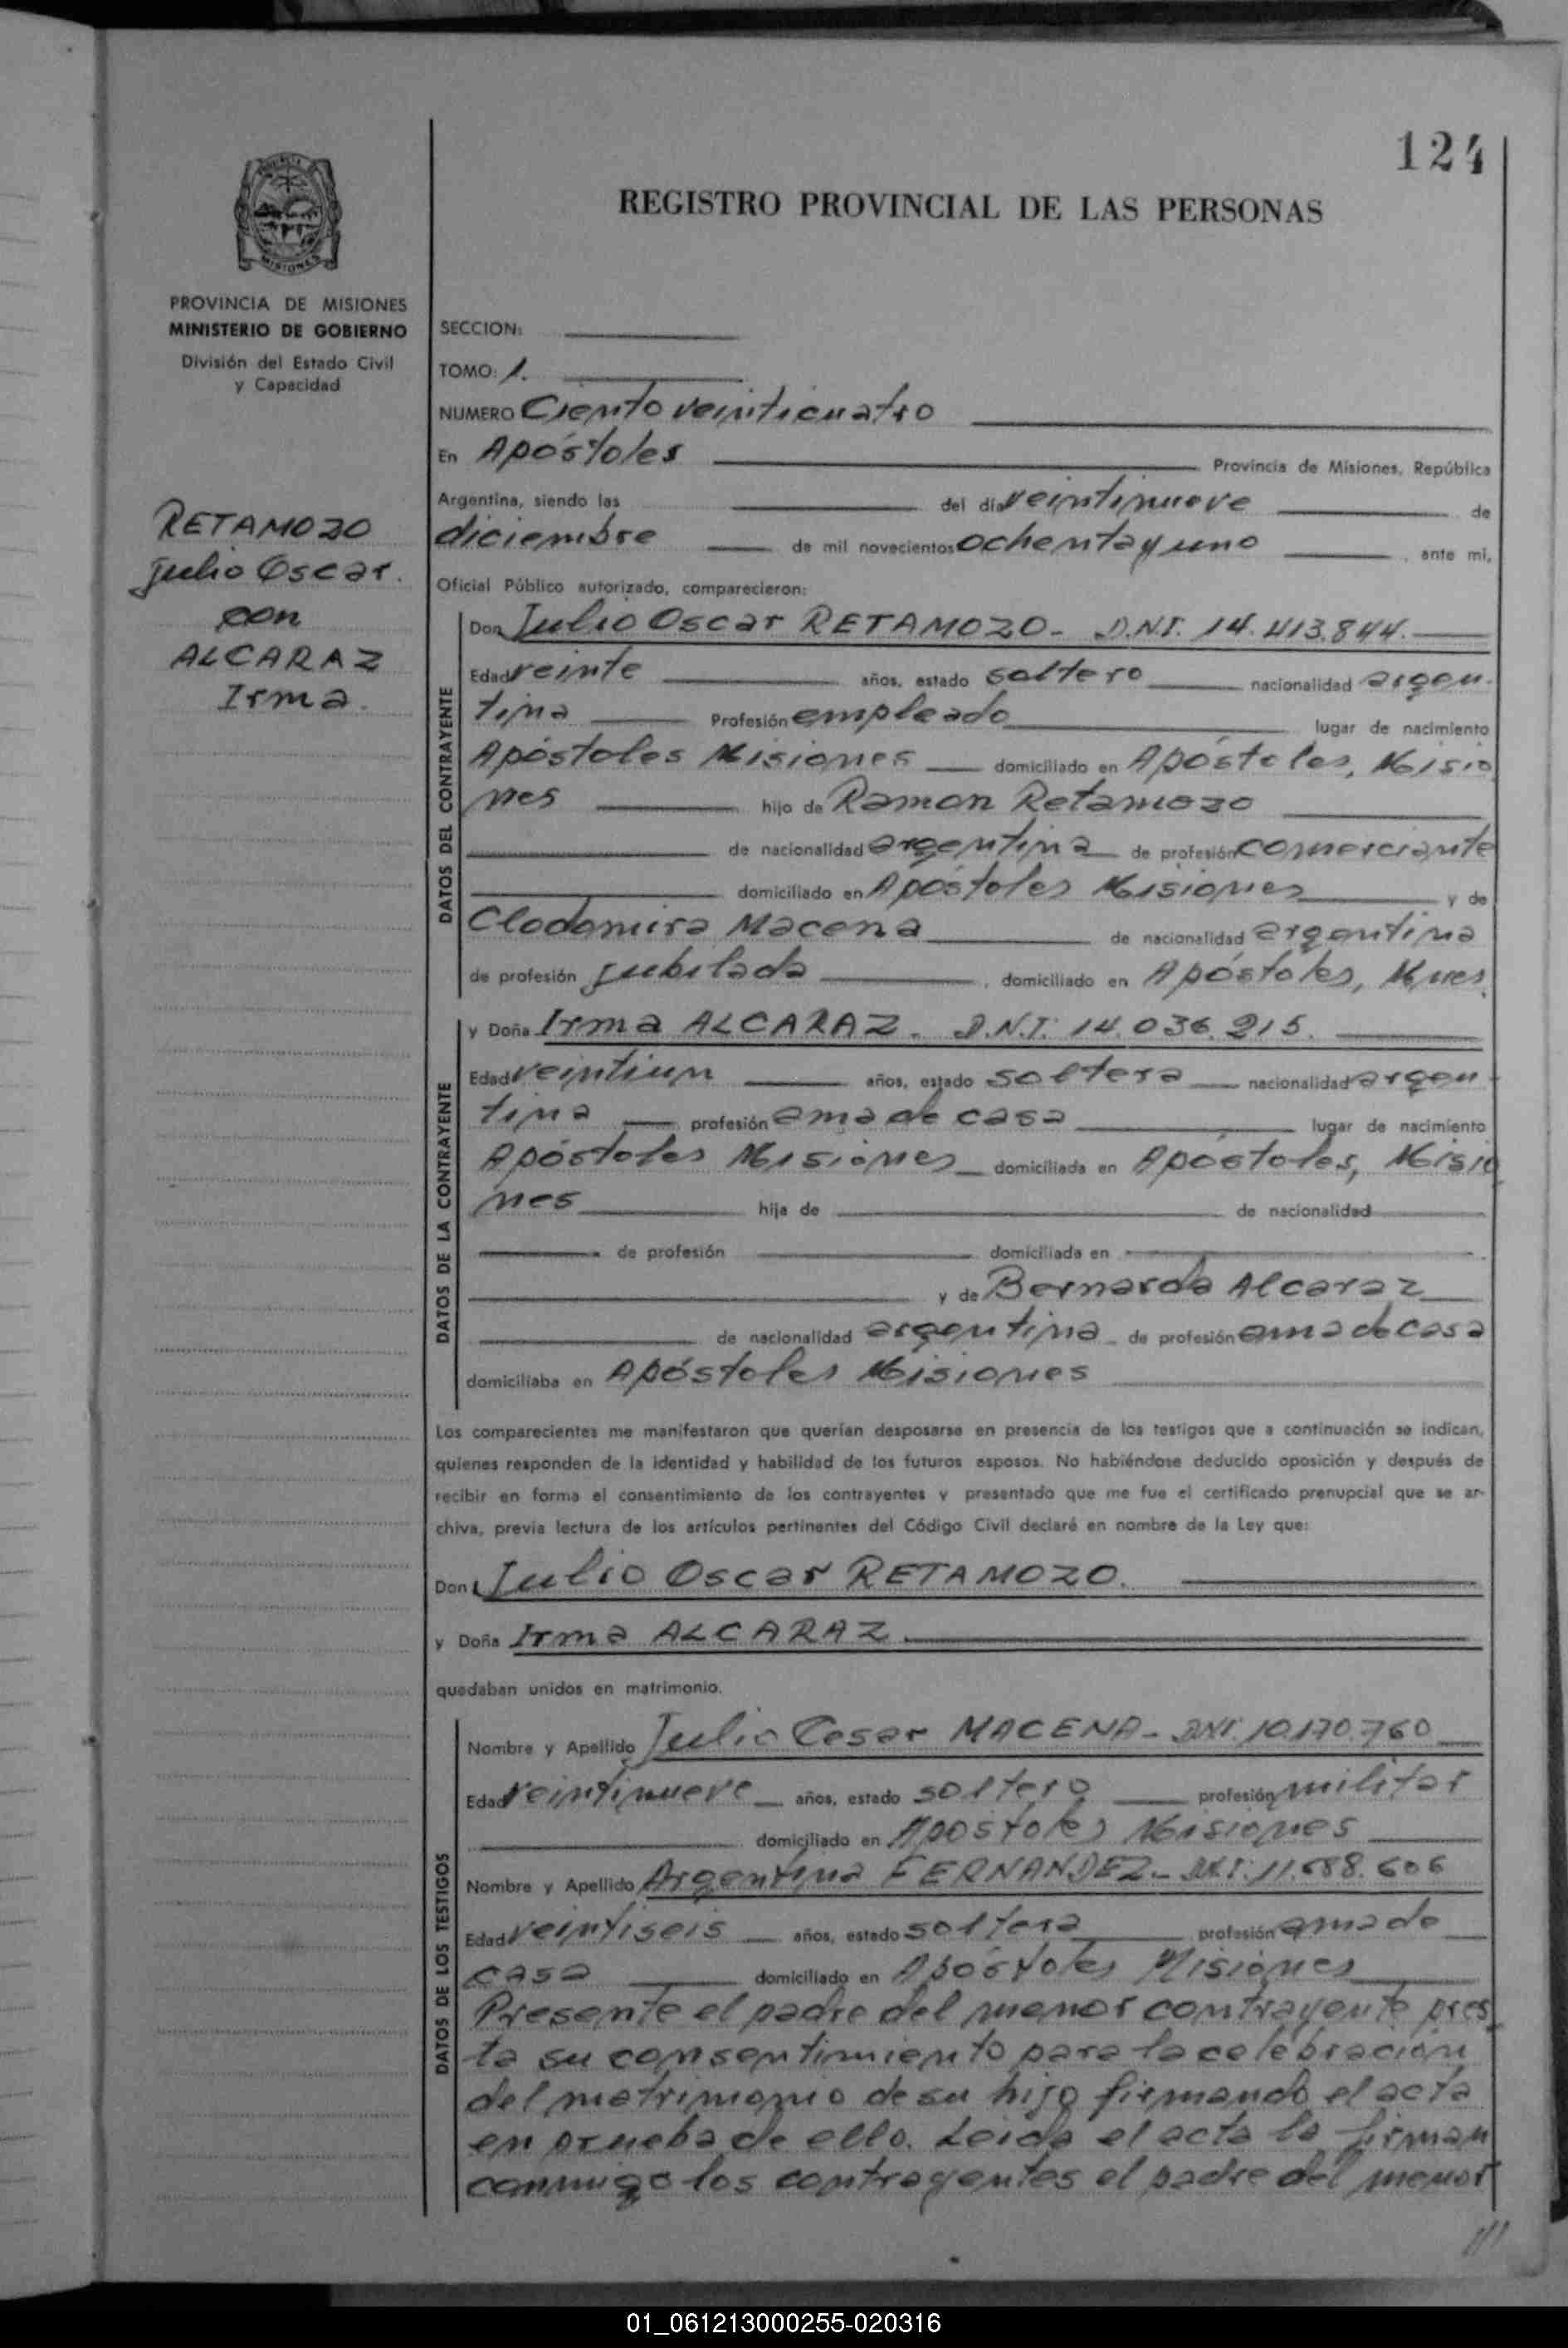 124
REGISTRO PROVINCIAL DE LAS PERSONAS
MISIONES
PROVINCIA DE MISIONES
MINISTERIO DE GOBIERNO
División del Estado Civil
y Capacidad
RETAMOZO
Julio Oscar.
con
ALCARAZ
Irma.
SECCION:
TOMO: 1.
NUMERO Ciento veinticuatro
En Apóstoles Provincia de Misiones, República
Argentina, siendo las del día veintinueve de
diciembre de mil novecientos ochenta y uno, ante mí,
Oficial Público autorizado, comparecieron:
DATOS DEL CONTRAYENTE
Don Julio Oscar RETAMOZO- D.N.I. 14.413.844.
Edad veinte años, estado soltero nacionalidad argen-
tina Profesión empleado lugar de nacimiento
Apóstoles Misiones domiciliado en Apóstoles, Misio
nes hijo de Ramon Retamozo
de nacionalidad argentina de profesión comerciante
domiciliado en Apóstoles Misiones y de
Clodomira Macena de nacionalidad argentina
de profesión jubilada, domiciliado en Apóstoles, Mnes.
DATOS DE LA CONTRAYENTE
y Doña Irma ALCARAZ. D.N.I. 14.036.215.
Edad veintiun años, estado soltera nacionalidad argen
tina profesión ama de casa lugar de nacimiento
Apóstoles Misiones domiciliada en Apóstoles, Misio
nes hija de de nacionalidad
de profesión domiciliada en
y de Bernarda Alcaraz
de nacionalidad argentina de profesión ama de casa
domiciliaba en Apóstoles Misiones
Los comparecientes me manifestaron que querían desposarse en presencia de los testigos que a continuación se indican,
quienes responden de la identidad y habilidad de los futuros esposos. No habiéndose deducido oposición y después de
recibir en forma el consentimiento de los contrayentes y presentado que me fue el certificado prenupcial que se ar-
chiva, previa lectura de los artículos pertinentes del Código Civil declaré en nombre de la Ley que:
Don Julio Oscar RETAMOZO.
y Doña Irma ALCARAZ.
quedaban unidos en matrimonio.
DATOS DE LOS TESTIGOS
Nombre y Apellido Julio Cesar MACENA- DNI. 10.170.760
Edad veintinueve años, estado soltero profesión militar
domiciliado en Apóstoles Misiones
Nombre y Apellido Argentina FERNANDEZ- D.N.I. 11.688.606
Edad veintiseis años, estado soltera profesión ama de
casa domiciliado en Apóstoles Misiones
Presente el padre del menor contrayente pres
ta su consentimiento para la celebración
del matrimonio de su hijo firmando el acta
en prueba de ello. Leida el acta la firman
conmigo los contrayentes el padre del menor
///
01_061213000255-020316